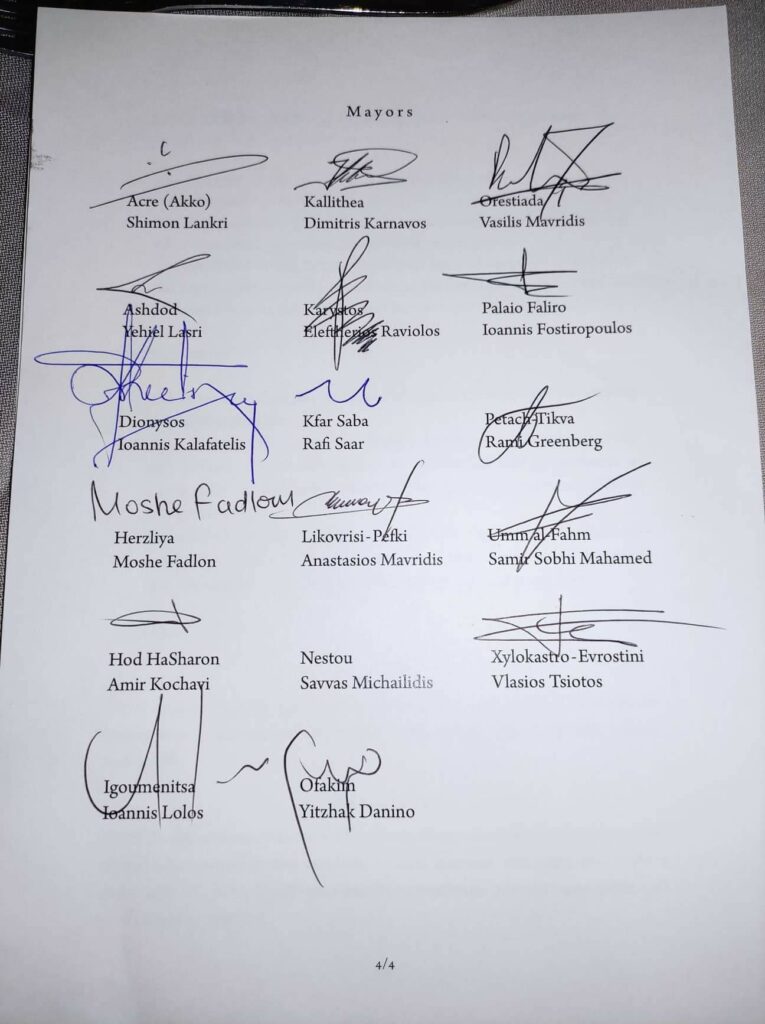 Mayors
Acre (Akko)
Shimon Lankri
Kallithea
Dimitris Karnavos
Orestiada
Vasilis Mavridis
Ashdod
Yehiel Lasri
Karystos
Eleftherios Raviolos
Palaio Faliro
Ioannis Fostiropoulos
Dionysos
Ioannis Kalafatelis
Kfar Saba
Rafi Saar
Petach-Tikva
Rami Greenberg
Moshe Fadlon
Herzliya
Moshe Fadlon
Likovrisi-Pefki
Anastasios Mavridis
Umm al-Fahm
Samir Sobhi Mahamed
Hod HaSharon
Amir Kochavi
Nestou
Savvas Michailidis
Xylokastro-Evrostini
Vlasios Tsiotos
Igoumenitsa
Ioannis Lolos
Ofakim
Yitzhak Danino
4/4